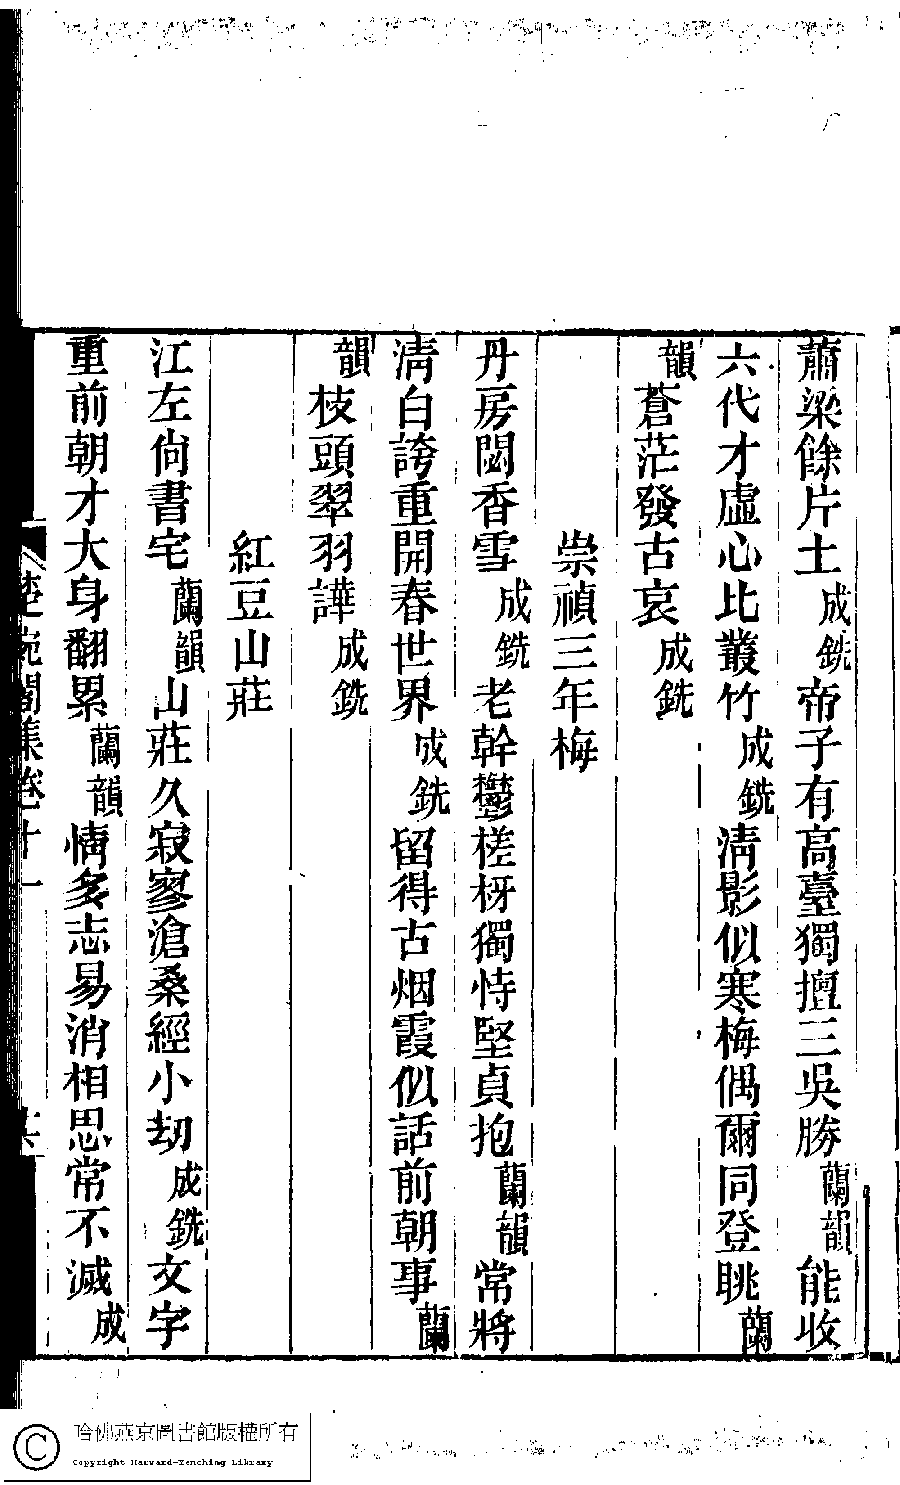 蕭梁餘片土成銑帝子有高臺獨擅三吳勝蘭韻能收
六代才虛心比叢竹成銑淸影似寒梅偶爾同登眺蘭
韻蒼茫發古哀成銑
崇禎三年梅
丹房閟香雪成銑老幹鬱槎枒獨恃堅貞抱蘭韻常將
淸白誇重開春世界成銑留得古烟霞似話前朝事蘭
韻枝頭翠羽譁成銑
紅豆山莊
江左尙書宅蘭韻山莊久寂寥滄桑經小刧成銑文字
重前朝才大身翻累蘭韻情多志易消相思常不滅成
楚畹閣集卷十一
哈佛燕京圖書館版權所有
Copyright Harvard-Yenching Library